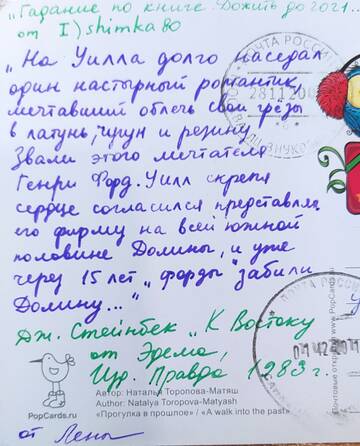 "Гадание по книге. Дожить до 2021...
от I)shimka80
"На Уилла долго наседал
один настырный романтик,
мечтавший облечь свои грёзы
в латунь, чугун и резину.
Звали этого мечтателя
Генри Форд. Уилл скрепя
сердце согласился представлять
его фирму на всей южной
половине Долины, и уже
через 15 лет "форды" забили
Долину..."
Дж. Стейнбек "К Востоку
от Эдема,
Изд. Правда 1983 г.
Автор: Наталья Торопова-Матяш
Author: Natalya Toropova-Matyash
«Прогулка в прошлое» / «A walk into the past»
PopCards.ru
от Лены
ПОЧТА РОССИИ
28112
ПОЧТА РОССИИ
www.PopCards.ru